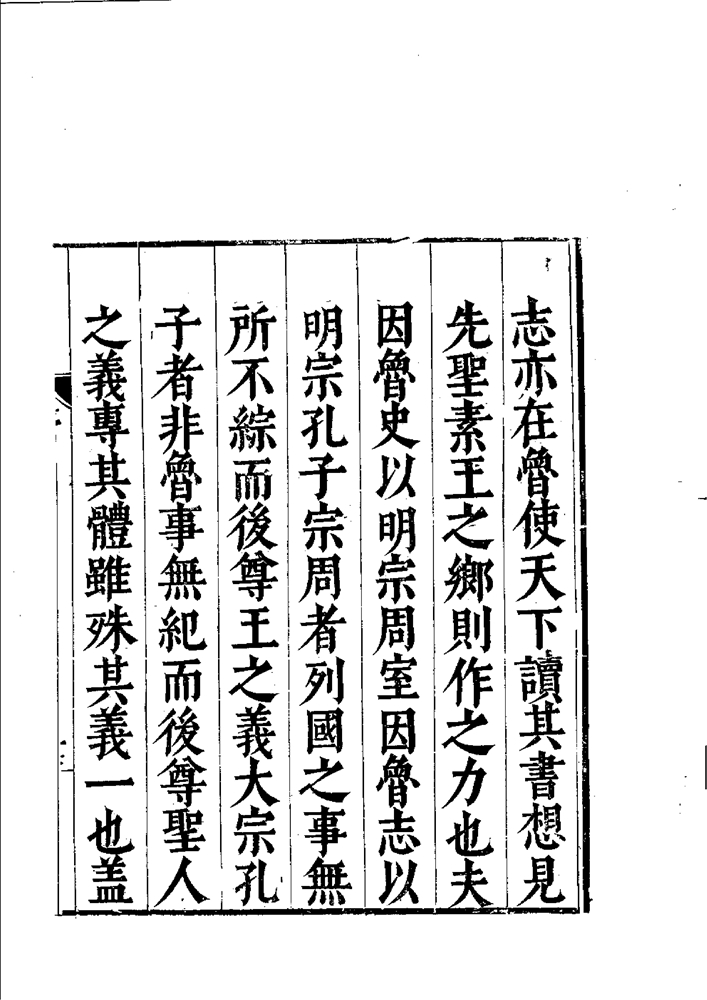 志亦在魯使天下讀其書想見
先聖素王之鄉則作之力也夫
因魯史以明宗周室因魯志以
明宗孔子宗周者列國之事無
所不綜而後尊王之義大宗孔
子者非魯事無紀而後尊聖人
之義專其體雖殊其義一也盖